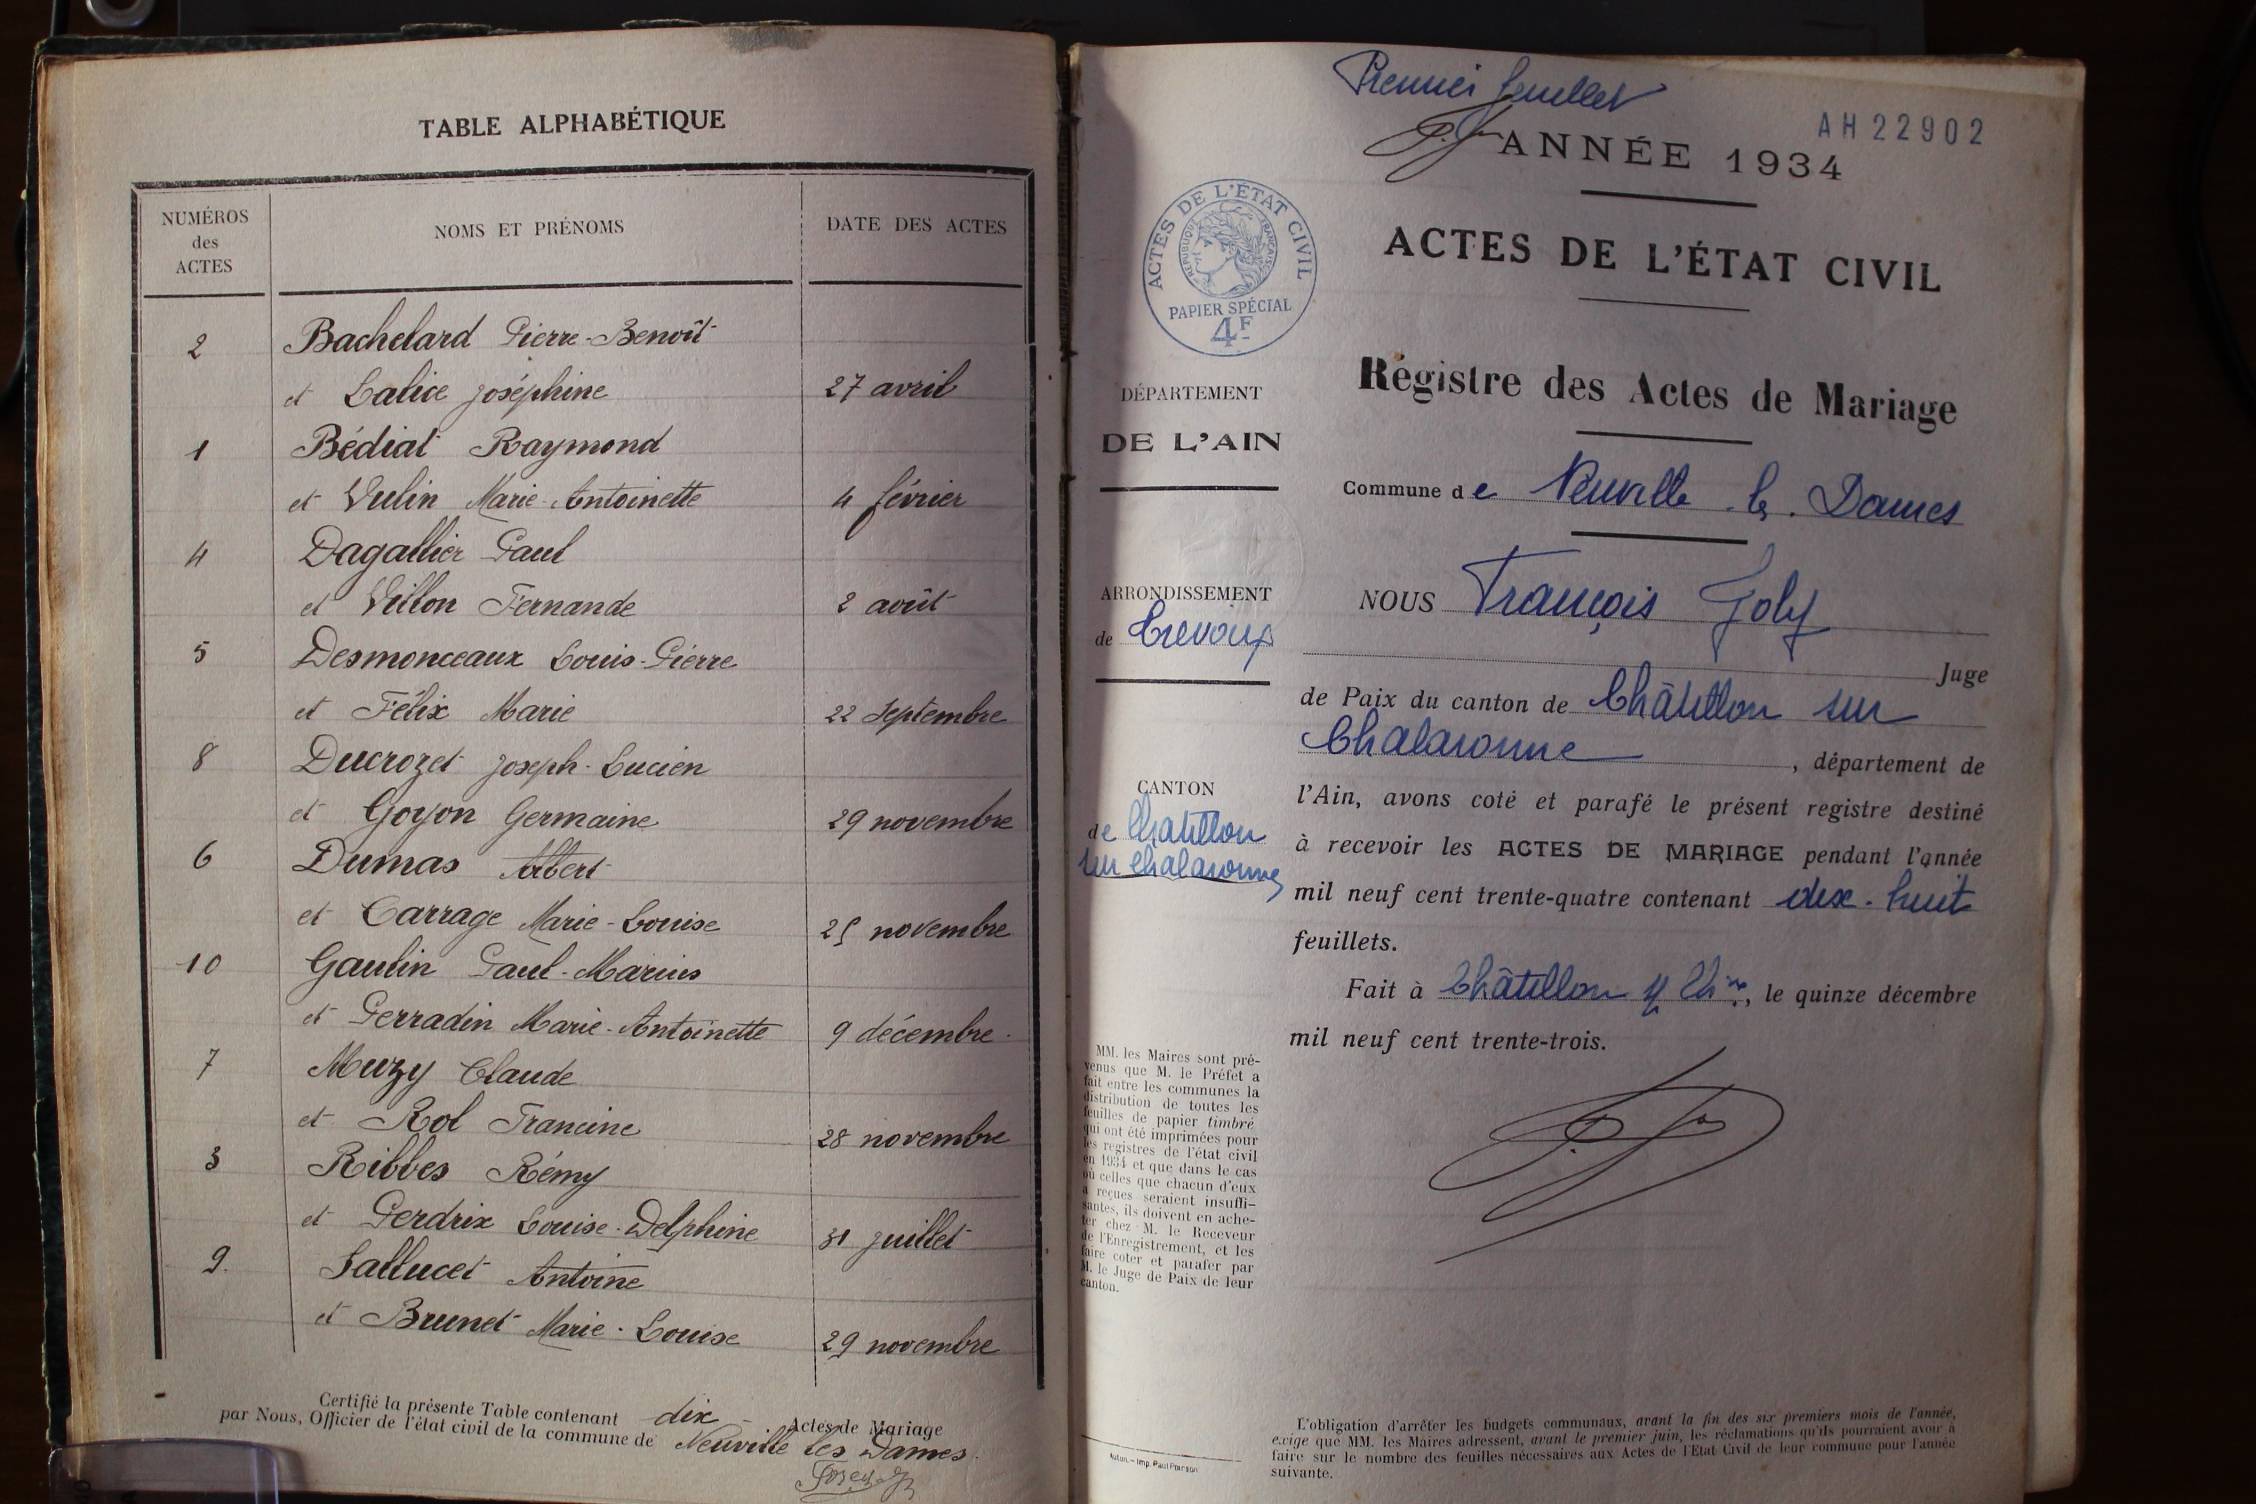 TABLE ALPHABÉTIQUE
NUMÉROS des ACTES NOMS ET PRÉNOMS DATE DES ACTES
2 Bachelard Pierre-Benoît
et Lalice Joséphine 27 avril
1 Bédiat Raymond
et Vulin Marie-Antoinette 4 février
4 Dagallier Paul
et Villon Fernande 2 août
5 Desmonceaux Louis-Pierre
et Félix Marie 22 Septembre
8 Ducrozet Joseph-Lucien
et Goyon Germaine 29 novembre
6 Dumas Albert
et Carrage Marie-Louise 25 novembre
10 Gaulin Paul-Marius
et Perradin Marie-Antoinette 9 décembre
7 Muzy Claude
et Rol Francine 28 novembre
3 Ribbes Rémy
et Perdrix Louise-Delphine 31 juillet
9. Sallucet Antoine
et Brunet Marie-Louise 29 novembre
Certifié la présente Table contenant dix Actes de Mariage
par Nous, Officier de l'état civil de la commune de Neuville les Dames.
Premier feuillet
AH22902
ANNÉE 1934
ACTES DE L'ÉTAT CIVIL
RÉPUBLIQUE FRANÇAISE
PAPIER SPÉCIAL
4F
ACTES DE L'ÉTAT CIVIL
Registre des Actes de Mariage
DÉPARTEMENT
DE L'AIN
Commune de Neuville-les-Dames
ARRONDISSEMENT
de Trévoux
CANTON
de Chatillon
sur Chalaronne
NOUS François Joly
Juge
de Paix du canton de Châtillon sur
Chalaronne, département de
l'Ain, avons coté et parafé le présent registre destiné
à recevoir les ACTES DE MARIAGE pendant l'année
mil neuf cent trente-quatre contenant dix-huit
feuillets.
Fait à Châtillon s/ Chne, le quinze décembre
mil neuf cent trente-trois.
MM. les Maires sont pré-
venus que M. le Préfet a
fait entre les communes la
distribution de toutes les
feuilles de papier timbré
qui ont été imprimées pour
les registres de l'état civil
en 1934 et que dans le cas
où celles que chacun d'eux
a reçues seraient insuffi-
santes, ils doivent en ache-
ter chez M. le Receveur
de l'Enregistrement, et les
faire coter et parafer par
M. le Juge de Paix de leur
canton.
Autun. — Imp. Paul Pernson
L'obligation d'arrêter les budgets communaux, avant la fin des six premiers mois de l'année,
exige que MM. les Maires adressent, avant le premier juin, les réclamations qu'ils pourraient avoir à
faire sur le nombre des feuilles nécessaires aux Actes de l'Etat Civil de leur commune pour l'année
suivante.